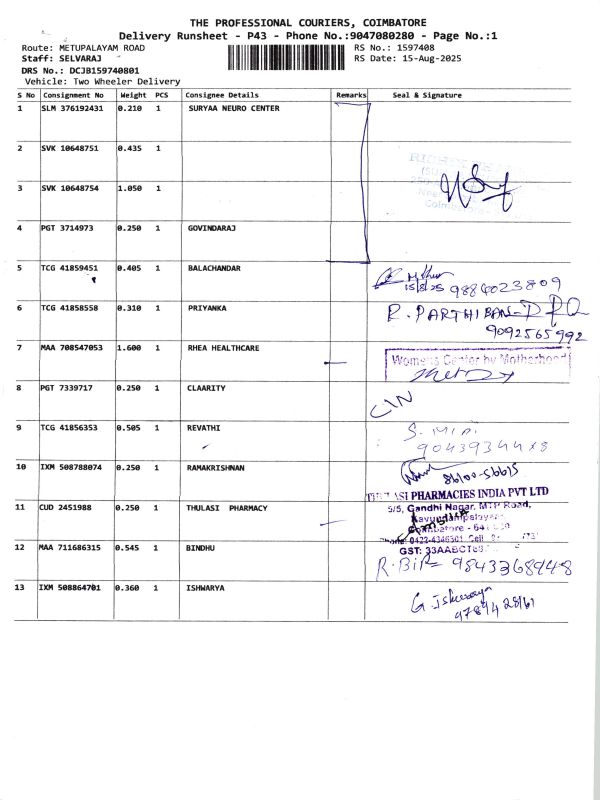 THE PROFESSIONAL COURIERS, COIMBATORE
Delivery Runsheet - P43 - Phone No.:9047080280 - Page No.:1
Route: METUPALAYAM ROAD RS No.: 1597408
Staff: SELVARAJ RS Date: 15-Aug-2025
DRS No.: DCJB159740801
Vehicle: Two Wheeler Delivery
S No Consignment No Weight PCS Consignee Details Remarks Seal & Signature
1 SLM 376192431 0.210 1 SURYAA NEURO CENTER
2 SVK 10648751 0.435 1
3 SVK 10648754 1.050 1
4 PGT 3714973 0.250 1 GOVINDARAJ
5 TCG 41859451 0.405 1 BALACHANDAR
15/8/25 9884023809
6 TCG 41858558 0.310 1 PRIYANKA R. PARTHIBAN
9092565992
7 MAA 708547053 1.600 1 RHEA HEALTHCARE
Womens Center by Motherhood
8 PGT 7339717 0.250 1 CLAARITY
CIN
9 TCG 41856353 0.505 1 REVATHI
10 IXM 508788074 0.250 1 RAMAKRISHNAN
86100-56615
PHARMACIES INDIA PVT LTD
11 CUD 2451988 0.250 1 THULASI PHARMACY 5/5, Gandhi Nagar, MTP Road,
Kavundampalayam
Coimbatore - 641
Phone: 0422-4346301, Cell:
12 MAA 711686315 0.545 1 BINDHU GST: 33AABCT
9843368948
13 IXM 508864701 0.360 1 ISHWARYA
G. Ishwarya